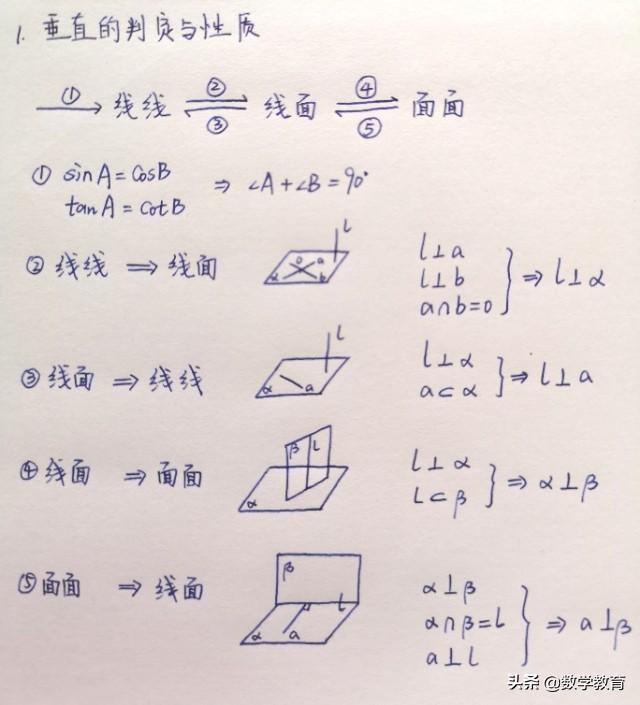 1. 垂直的判定与性质
① ② ④
线线 线面 面面
③ ⑤
① sinA=cosB
tanA=cotB
⇒ ∠A+∠B=90°
② 线线 ⇒ 线面
l
o a
α b
l⊥a
l⊥b
a∩b=o
⇒ l⊥α
③ 线面 ⇒ 线线
l
α a
l⊥α
a⊂α
⇒ l⊥a
④ 线面 ⇒ 面面
β l
α
l⊥α
l⊂β
⇒ α⊥β
⑤ 面面 ⇒ 线面
β
l
α a
α⊥β
α∩β=l
a⊥l
⇒ a⊥β
头条 @数学教育